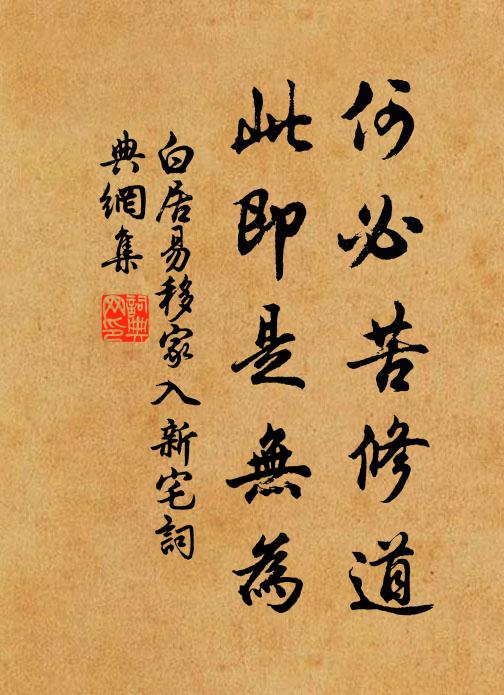 何必苦修道
此即是無為
白居易移家入新宅詞
典網集
詞典
网印